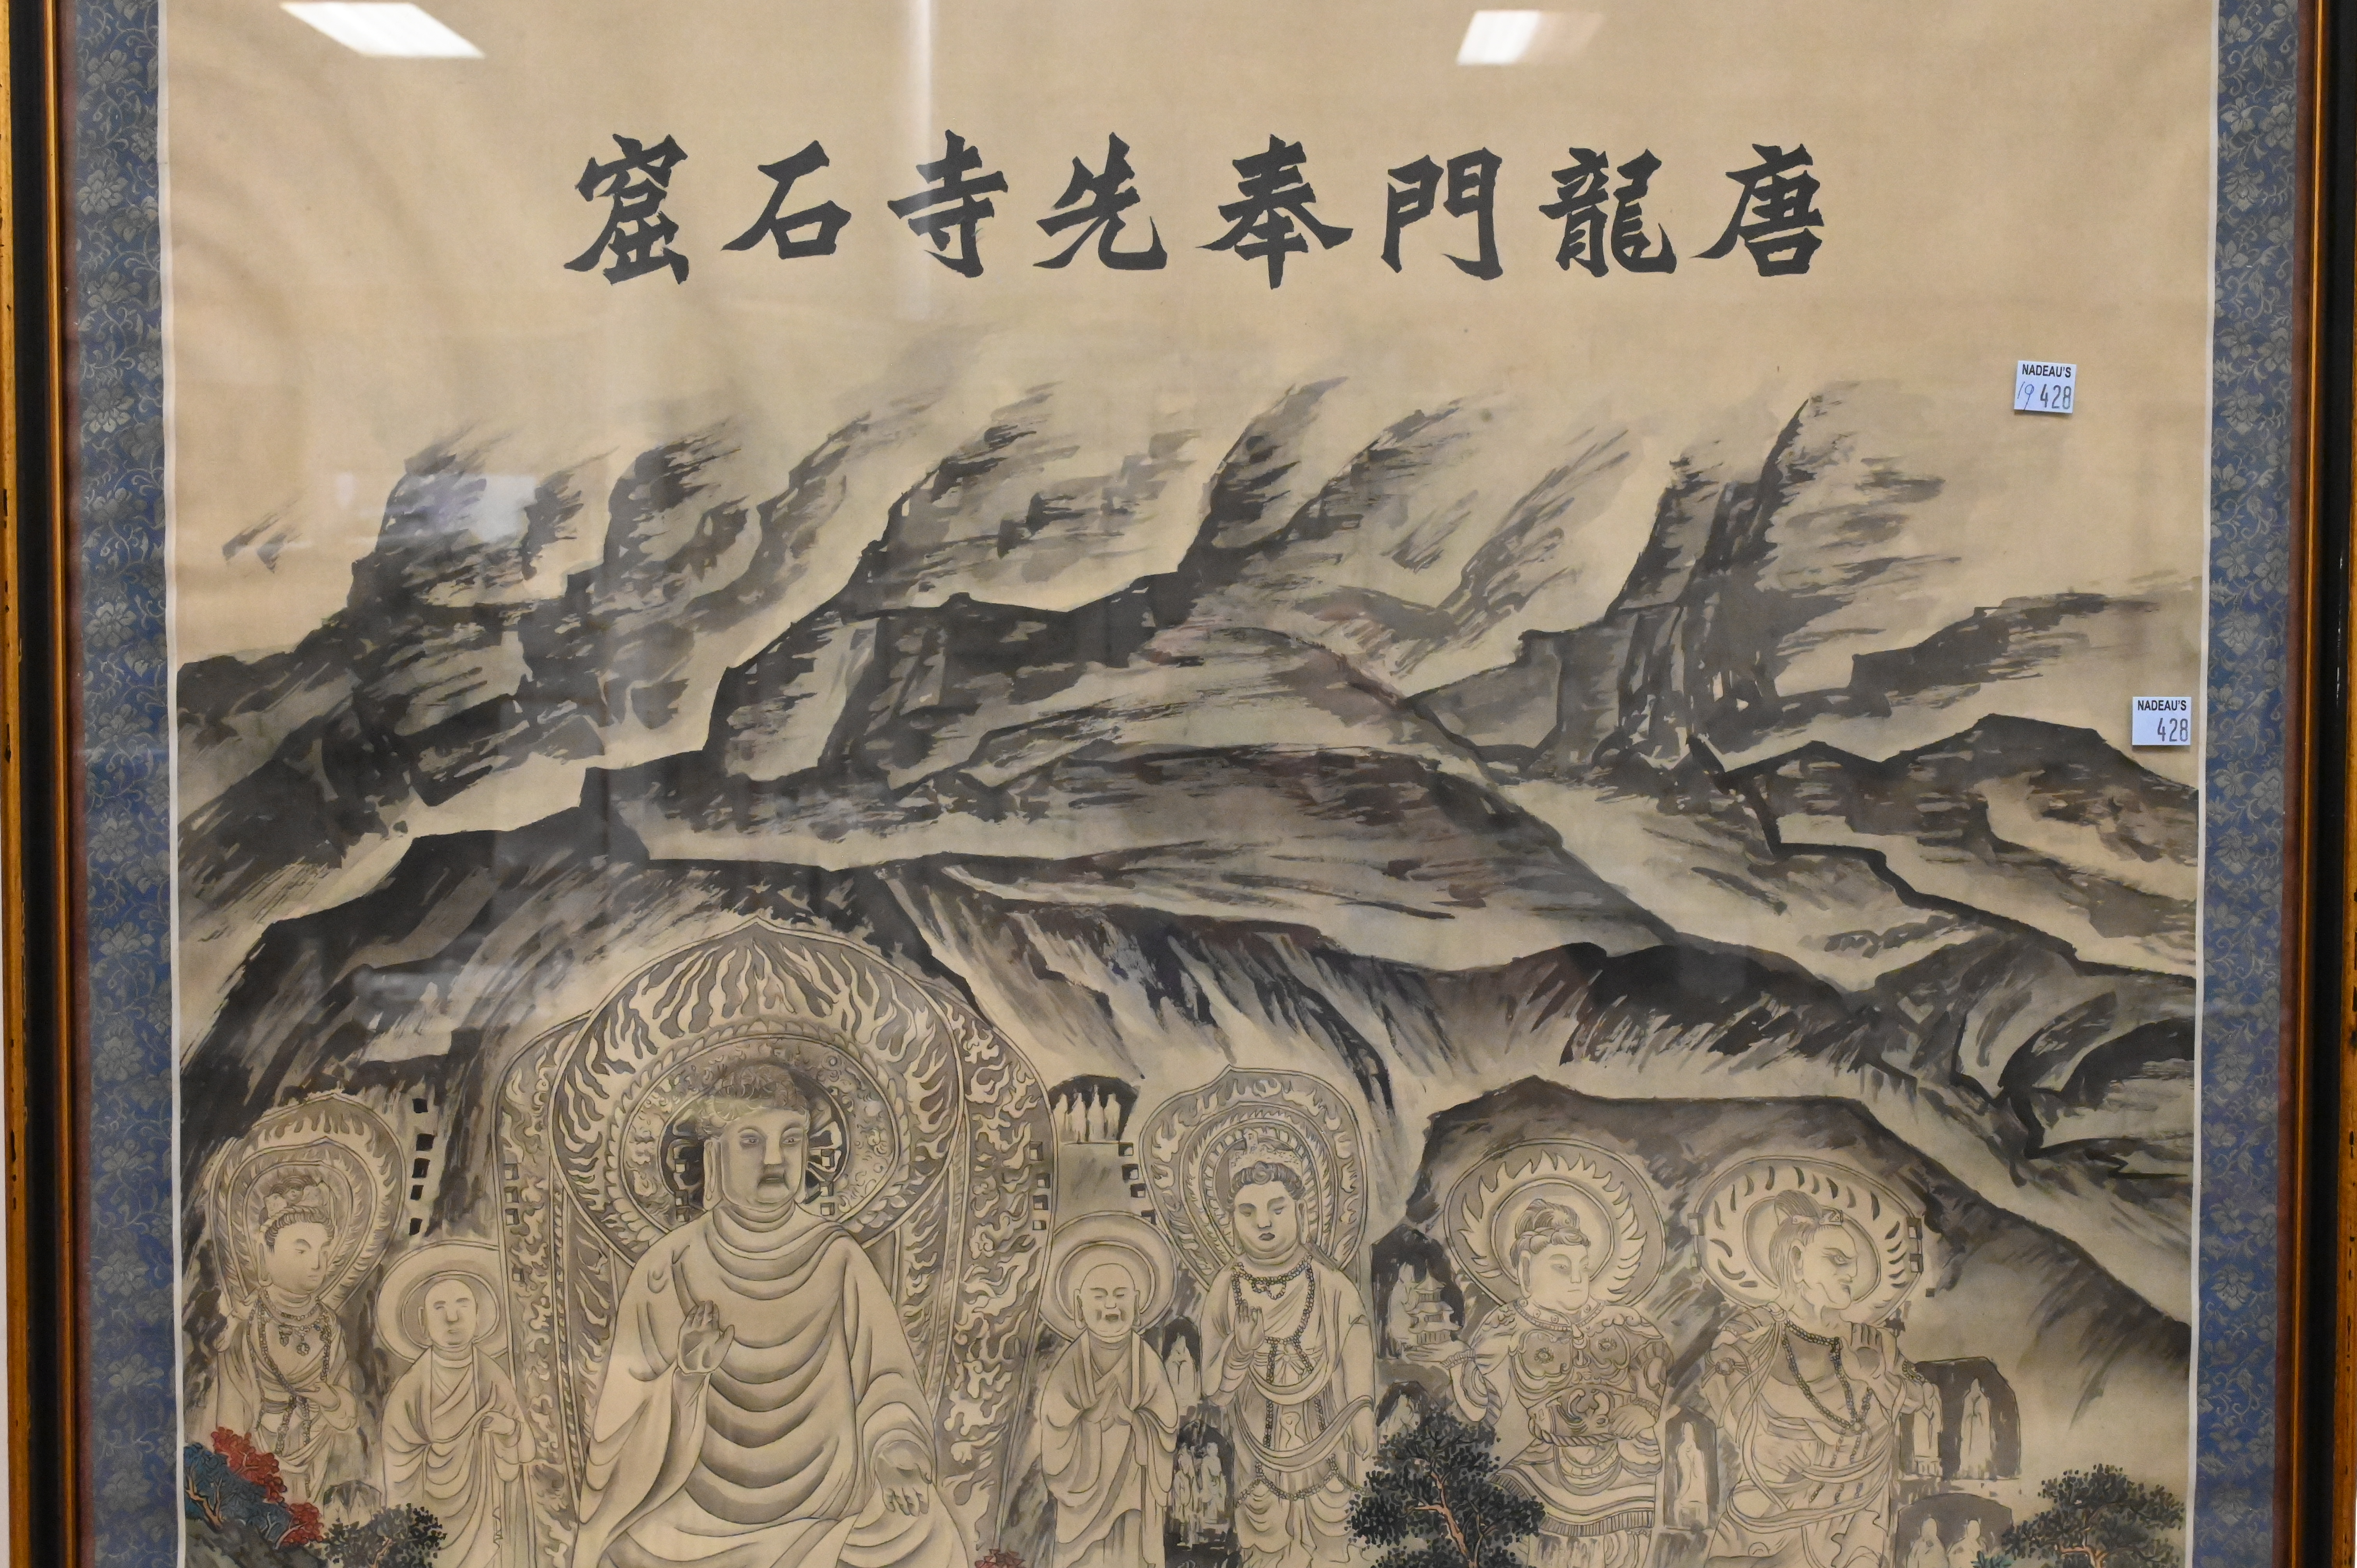 唐龍門奉先寺石窟
NADEAU'S
19 428
NADEAU'S
428